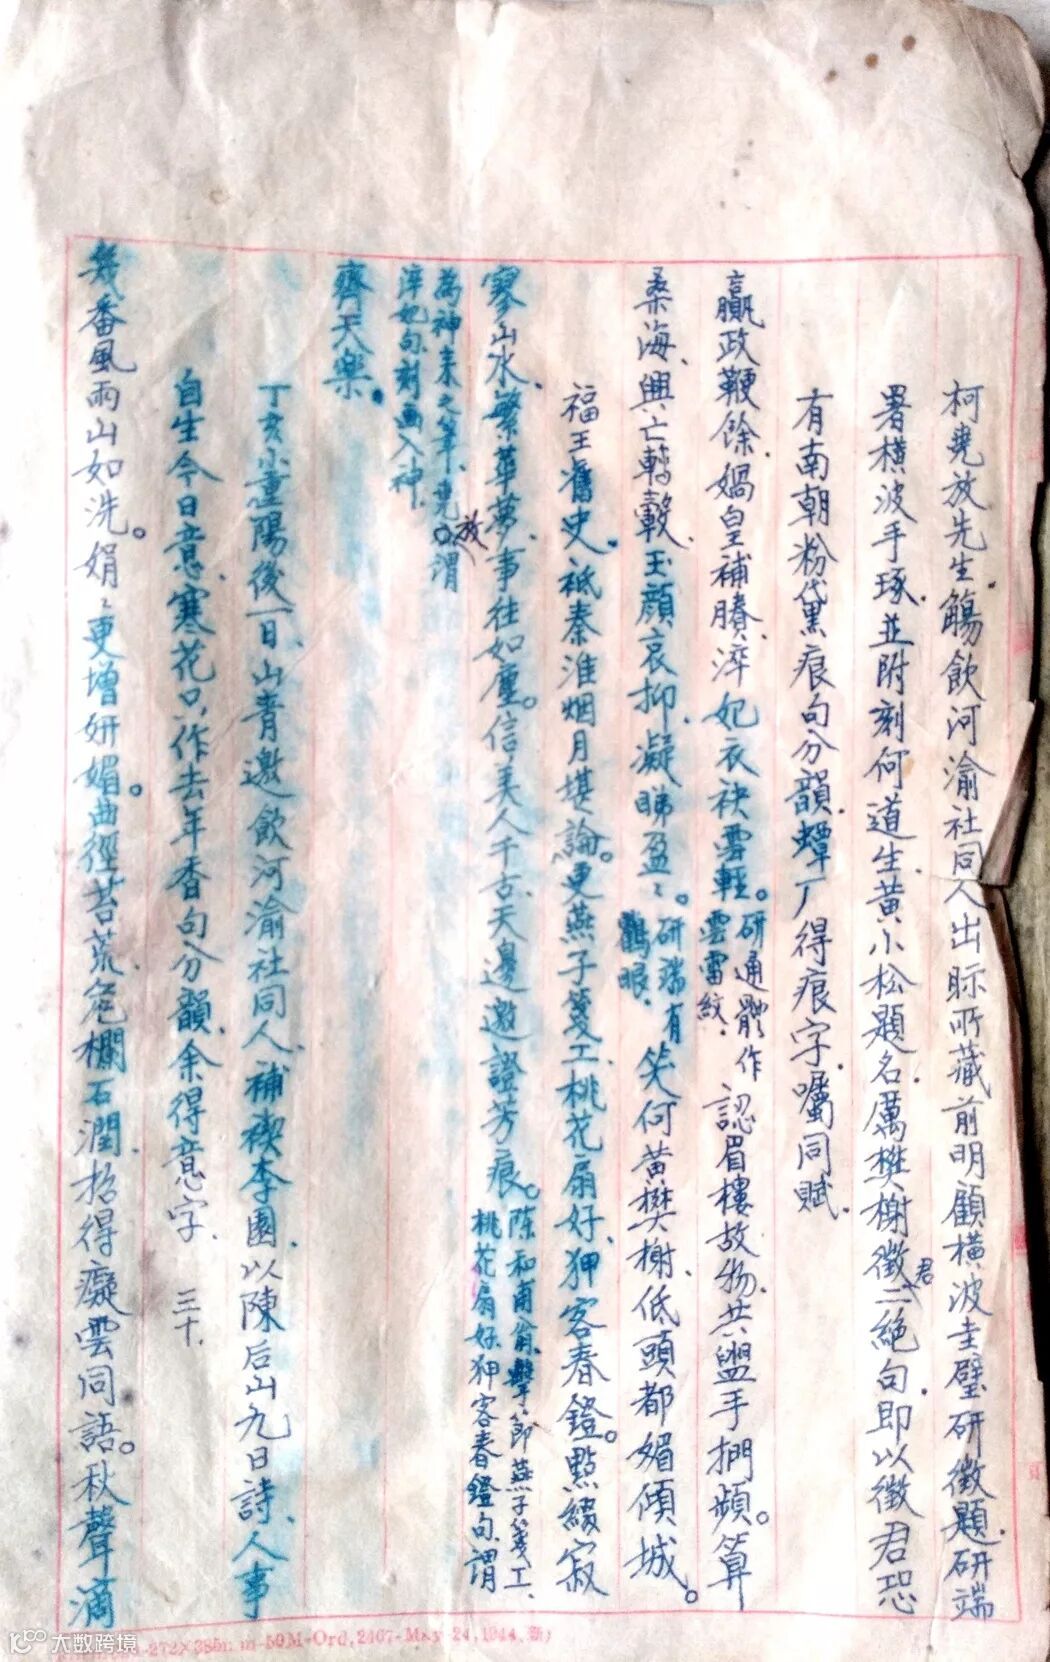 柯堯放先生、觴飲河渝社同人出眎所藏前明顧橫波圭璧研徵題、研端
署橫波手琢、並附刻何道生、黃小松題名、厲樊榭徵君二絕句、即以徵君恐
有南朝粉黛黑痕句分韻、蟫厂得痕字、囑同賦、
嬴政鞭餘、媧皇補賸、淬妃衣袂雲輕。研通體作
雲雷紋、認眉樓故物、共盥手捫蘋。算
桑海、興亡轉轂、玉顏哀抑、凝睇盈〻。研端有
鸛眼、笑何黃樊榭、低頭都媚傾城。
福王舊史、祗秦淮烟月堪論。更燕子箋工、桃花扇好、狎客春鐙。點綴寂
寥山水、繁華夢、事往如塵。信美人千古、天邊邀證芳痕。陳和甫翁擊〻節燕子箋工、
桃花扇好狎客春鐙句、謂
為神來之筆、堯放謂
淬妃句、刻畫入神、
齊天樂。
丁亥小重陽後一日、山青邀飲河渝社同人、補禊李園、以陳后山九日詩、人事
自生今日意、寒花只作去年香句分韻、余得意字、三十、
幾番風雨山如洗。娟〻更增妍媚。曲徑苔荒、危欄石潤、招得癡雲同語。秋聲滴
272×385m m-50M-Ord,2467-May-24,1944
大数跨境